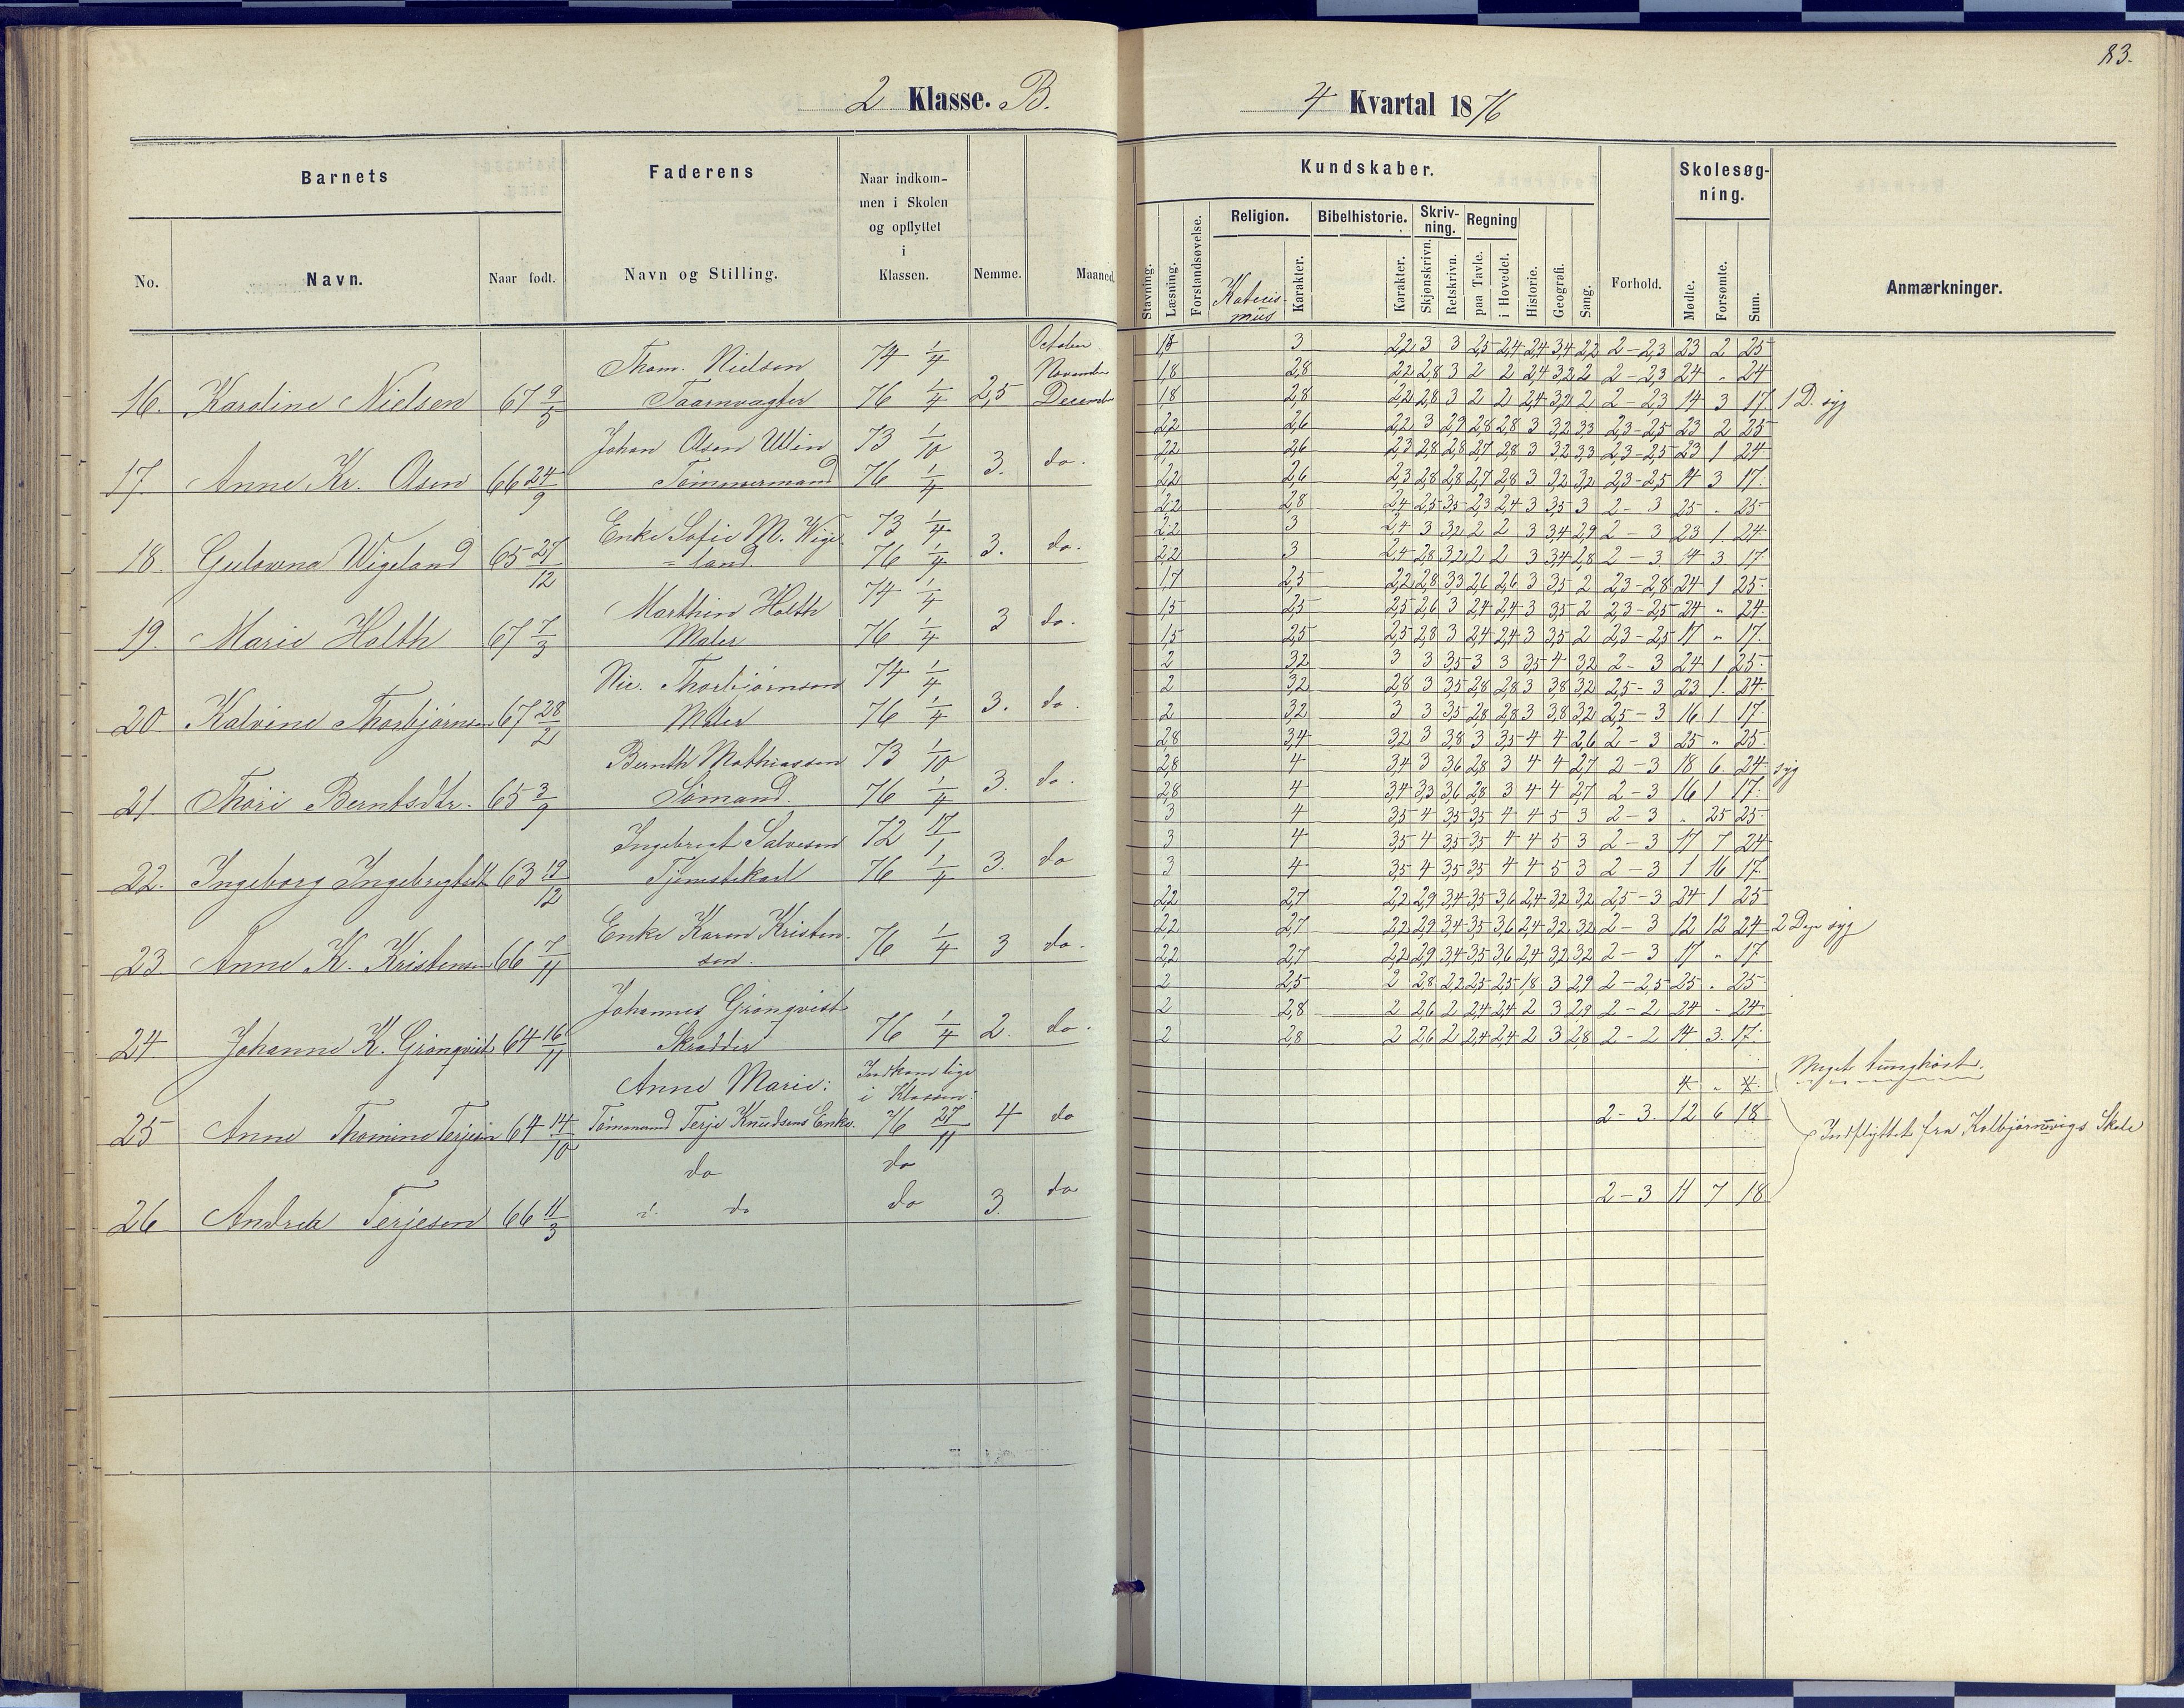 83.
2 Klasse. B.
4 Kvartal 1876
Barnets
Faderens
Naar indkom-
men i Skolen
og opflyttet
i
Klassen.
No.
Navn.
Naar født.
Navn og Stilling.
Nemme.
Maaned.
Kundskaber.
Skolesøg-
ning.
Religion.
Bibelhistorie.
Skriv-
ning.
Regning
Stavning.
Læsning.
Forstandsøvelse.
Katecis-
mus
Karakter.
Karakter.
Skjønskrivn.
Retskrivn.
paa Tavle.
i Hovedet.
Historie.
Geografi.
Sang.
Forhold.
Mødte.
Forsømte.
Sum.
Anmærkninger.
Thom. Nielsen 74 1/4 October
November
16. Karoline Nielsen 67 9/5 Taarnvagter 76 1/4 2,5 Decembr
Johan Olsen Ullin 73 1/10
17. Anne Kr. Olsen 66 24/9 Tømmermand 76 1/4 3. do.
Enke Sofie M. Wige 73 1/4
18. Gulovna Wigeland 65 27/12 = land. 76 1/4 3. do.
Marthin Holth 74 1/4
19. Marie Holth 67 7/3 Maler 76 1/4 3 do.
Nic. Thorbjørnsen 74 1/4
20. Kalvine Thorbjørnsen 67 28/2 Maler 76 1/4 3. do.
Bernth Mathiassen 73 1/10
21. Thori Berntsdtr. 65 3/9 Sømand. 76 1/4 3. do.
Ingebregt Salvesen 72 17/1
22. Ingeborg Ingebregtsdt 63 19/12 Tjenestekarl 76 1/4 3. do
Enke Karen Kristen-
23. Anne K. Kristensen 66 7/11 sen. 76 1/4 3 do.
Johannes Grönqvist
24. Johanne K. Grönqvist 64 16/11 Skrædder 76 1/4 2. do.
Anne Marie: Indkom lige
i Klassen:
25 Anne Thomine Terjesen 64 14/10 Tømmermd Terje Knudsens Enke. 76 27/11 4 do
do do
26 Andrea Terjesen 66 11/3 do do 3. do
1,8 3 2,2 3 3 2,5 2,4 2,4 3,4 2,2 2-2,3 23 2 25
1,8 2,8 2,2 2,8 3 2 2 2,4 3,2 2 2-2,3 24 " 24
1,8 2,8 2,2 2,8 3 2 2 2,4 3,2 2 2-2,3 14 3 17. 1 D. syg
2,2 2,6 2,2 3 2,9 2,8 2,8 3 3,2 3,3 2,3-2,5 23 2 25
2,2 2,6 2,3 2,8 2,8 2,7 2,8 3 3,2 3,3 2,3-2,5 23 1 24
2,2 2,6 2,3 2,8 2,8 2,7 2,8 3 3,2 3,2 2,3-2,5 14 3 17.
2,2 2,8 2,4 2,5 3,5 2,3 2,4 3 3,5 3 2-3 25 " 25
2,2 3 2,4 3 3,2 2 2 3 3,4 2,9 2-3 23 1. 24
2,2 3 2,4 2,8 3,2 2 2 3 3,4 2,8 2-3. 14 3. 17
1,7 2,5 2,2 2,8 3,3 2,6 2,6 3 3,5 2 2,3-2,8 24 1 25
1,5 2,5 2,5 2,6 3 2,4 2,4 3 3,5 2 2,3-2,5 24 " 24
1,5 2,5 2,5 2,8 3 2,4 2,4 3 3,5 2 2,3-2,5 17 " 17.
2 3,2 3 3 3,5 3 3 3,5 4 3,2 2-3 24 1 25
2 3,2 2,8 3 3,5 2,8 2,8 3 3,8 3,2 2,5-3 23 1. 24
2 3,2 3 3 3,5 2,8 2,8 3 3,8 3,2 2,5-3 16 1 17.
2,8 3,4 3,2 3 3,8 3 3,5 4 4 2,6 2-3 25 " 25.
2,8 4 3,4 3 3,6 2,8 3 4 4 2,7 2-3 18 6. 24 syg
2,8 4 3,4 3,3 3,6 2,8 3 4 4 2,7 2-3 16 1 17.
3 4 3,5 4 3,5 3,5 4 4 5 3 2-3 " 25 25
3 4 3,5 4 3,5 3,5 4 4 5 3 2-3 17 7 24
3 4 3,5 4 3,5 3,5 4 4 5 3 2-3 1 16 17.
2,2 2,7 2,2 2,9 3,4 3,5 3,6 2,4 3,2 3,2 2,5-3 24 1 25
2,2 2,7 2,2 2,9 3,4 3,5 3,6 2,4 3,2 3,2 2-3 12 12 24 2 Dage syg
2,2 2,7 2,2 2,9 3,4 3,5 3,6 2,4 3,2 3,2 2-3 17 " 17
2 2,5 2 2,8 2,2 2,5 2,5 1,8 3 2,9 2-2,5 25 " 25
2 2,8 2 2,6 2 2,4 2,4 2 3 2,9 2-2 24 " 24
2 2,8 2 2,6 2 2,4 2,4 2 3 2,8 2-2 14 3. 17.
4 " 4. Meget tunghørt.
2-3. 12 6 18
Indflyttet fra Kolbjørnsvigs Skole
2-3 11 7 18